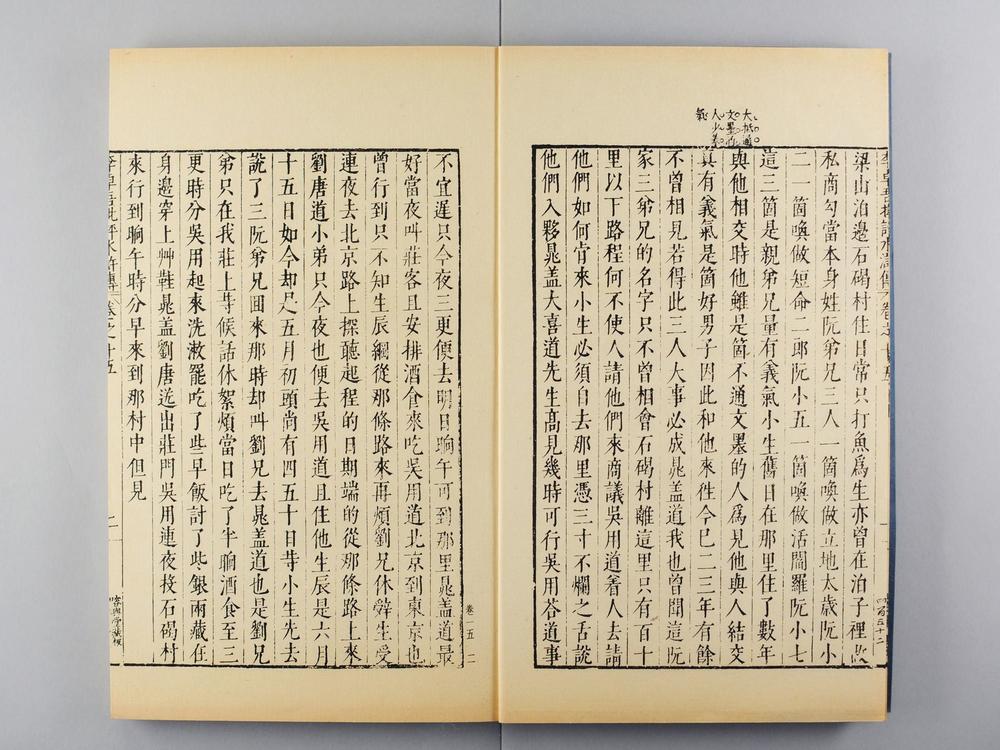 李卓吾批評水滸傳 卷之十五
大抵通
文墨的
人少義
氣
梁山泊邊石碣村住日常只打魚爲生亦曾在泊子裡做
私商勾當本身姓阮弟兄三人一箇喚做立地太歲阮小
二一箇喚做短命二郎阮小五一箇喚做活閻羅阮小七
這三箇是親弟兄最有義氣小生舊日在那里住了數年
與他相交時他雖是箇不通文墨的人爲見他與人結交
真有義氣是箇好男子因此和他來徃今已二三年有餘
不曾相見若得此三人大事必成晁盖道我也曾聞這阮
家三弟兄的名字只不曾相會石碣村離這里只有百十
里以下路程何不使人請他們來商議吳用道着人去請
他們如何肯來小生必須自去那里憑三寸不爛之舌說
他們入夥晁盖大喜道先生高見幾時可行吳用荅道事
卷十五 二
不宜遲只今夜三更便去明日晌午可到那里晁盖道最
好當夜叫莊客且安排酒食來吃吳用道北京到東京也
曾行到只不知生辰綱從那條路來再煩劉兄休辭生受
連夜去北京路上探聽起程的日期端的從那條路上來
劉唐道小弟只今夜也便去吳用道且住他生辰是六月
十五日如今却是五月初頭尚有四五十日等小生先去
說了三阮弟兄囬來那時却叫劉兄去晁盖道也是劉兄
弟只在我莊上等候話休絮煩當日吃了半晌酒食至三
更時分吳用起來洗漱罷吃了些早飯討了些銀兩藏在
身邊穿上艸鞋晁盖劉唐送出莊門吳用連夜投石碣村
來行到晌午時分早來到那村中但見
李卓吾批評水滸傳 卷之十五 二 容與堂藏板